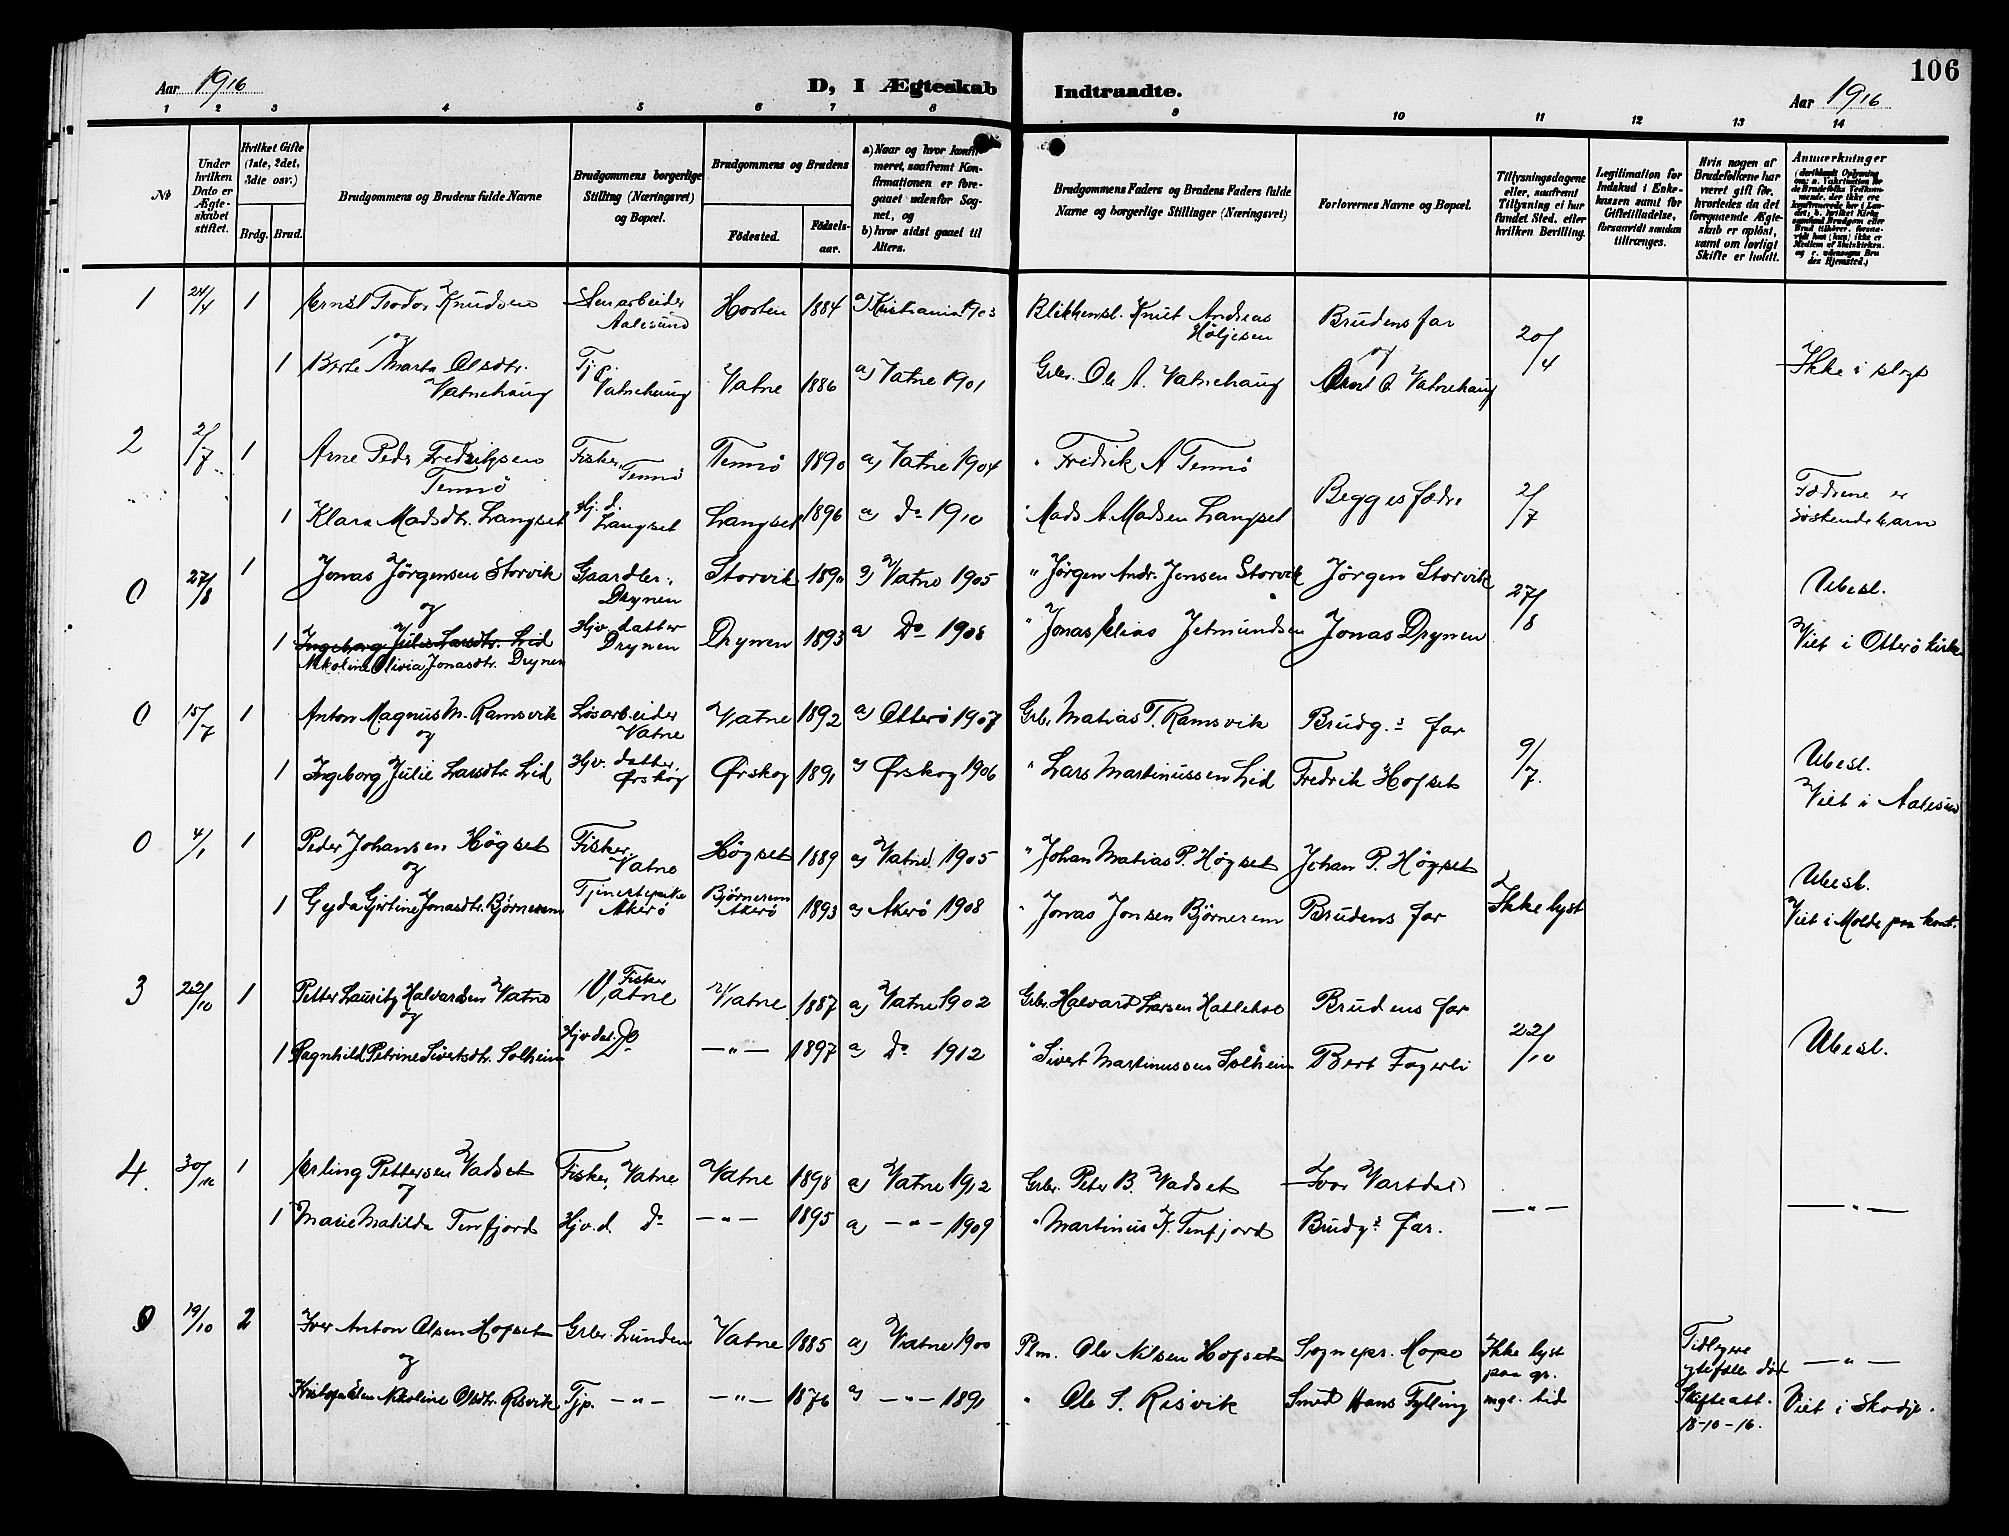 106
Aar 1916
D, I Ægteskab Indtraadte.
Aar 1916
1 2 3 4 5 6 7 8 9 10 11 12 13 14
№
Under hvilken Dato er Ægteskabet stiftet.
Hvilket Gifte (1ste, 2det, 3die osv.)
Brdg. Brud.
Brudgommens og Brudens fulde Navne
Brudgommens borgerlige Stilling (Næringsvei) og Bopæl.
Brudgommens og Brudens
Fødested.
Fødselsaar.
a) Naar og hvor konfirmeret, saafremt Konfirmationen er foregaaet udenfor Sognet, og
b) hvor sidst gaaet til Alters.
Brudgommens Faders og Brudens Faders fulde Navne og borgerlige Stillinger (Næringsvei)
Forlovernes Navne og Bopæl.
Tillysningsdagene eller, saafremt Tillysning ei har fundet Sted, efter hvilken Bevilling.
Legitimation for Indskud i Enkekassen samt for Giftetilladelse, forsaavidt saadan tiltrænges.
Hvis nogen af Brudefolkene har været gift før, hvorledes da det foregaaende Ægteskab er opløst, samt om lovligt Skifte er holdt.
Anmærkninger
1 24/4 1 Ernst Teodor Knudsen Stenarbeider Aalesund Horten 1884 a) Kristiania 1903 Blikkensl. Knut Andreas Høljesen Brudens far 20/4
og
1 Berte Marta Olsdtr. Vatnehaug Tjp. Vatnehaug Vatne 1886 a) Vatne 1901 Grbr. Ole A. Vatnehaug og Arnt O Vatnehaug Ikke i slegt
2 2/7 1 Arne Peder Fredriksen Tennø Fisker, Tennø Tennø 1890 a) Vatne 1904 " Fredrik A Tennø Begges fædre 2/7
1 Klara Madsdtr. Langset Hj. d. Langset Langset 1896 a) Do 1910 " Mads A. Madsen Langset Fædrene er søskendebarn
0 27/8 1 Jonas Jörgensen Storvik Gaardbr. Drynen Storvik 1890 a) Vatne 1905 " Jörgen Andr. Jensen Storvik Jörgen Storvik 27/8 Ubesl.
og
1 Ingeborg Julie Larsdtr. Lid
Nikoline Olivia Jonasdtr. Drynen Hjv. datter Drynen Drynen 1893 a Do 1908 " Jonas Elias Jetmundsen Jonas Drynen Viet i Otterö kirke
0 15/7 1 Anton Magnus M. Ramsvik Løsarbeider Vatne Vatne 1892 a) Otterö 1907 Grbr. Matias T. Ramsvik Brudg.s far 9/7
og
1 Ingeborg Julie Larsdtr. Lid Hjv. datter, Ørskog Ørskog 1891 a) Ørskog 1906 " Lars Martinussen Lid Fredrik Hofset Ubesl. Viet i Aalesund
0 4/1 1 Peder Johansen Høgset Fisker, Vatne Høgset 1889 a) Vatne 1905 " Johan Matias P. Høgset Johan P. Høgset Ikke lyst Ubesl.
og
1 Gyda Girtine Jonasdtr. Björnerem Tjenestepike Akerö Björnerem Akerö 1893 a) Akerö 1908 " Jonas Jonsen Björnerem Brudens far Viet i Molde paa kont.
3 22/10 1 Petter Lauritz Halvardsen Vatne Fisker Vatne Vatne 1887 a) Vatne 1902 Grbr. Halvard Larsen Hatlehol Brudens far 22/10
og
1 Ragnhild Petrine Sivertsdtr. Solheim Hjv. dat. Do — " — 1897 a) Do 1912 " Sivert Martinussen Solheim Bert Fagerli Ubesl.
4. 30/10 1 Erling Pettersen Vadset Fisker, Vatne Vatne 1898 a) Vatne 1912 Grbr. Peter B. Vadset Ivar Vartdal — " — — " —
og
1 Marie Matilda Tenfjord Hjv. d. Do — " — 1895 a — " — 1909 " Martinus K. Tenfjord Brudg.s far.
0 19/10 2 Iver Anton Olsen Hofset Grbr. Lunden Vatne 1885 a) Vatne 1900 Plm. Ole Nilsen Hofset Sognepr. Hope Ikke lyst paa gr. mgl. tid Tidligere gtefelle död — " —
og
Elen Nikoline Olsdtr. Risvik Tjp. — " — — " — 1876 a) — " — 1891 " Ole S. Risvik Smed Hans Fylling Skifteatt. 18-10-16. Viet i Skodje.